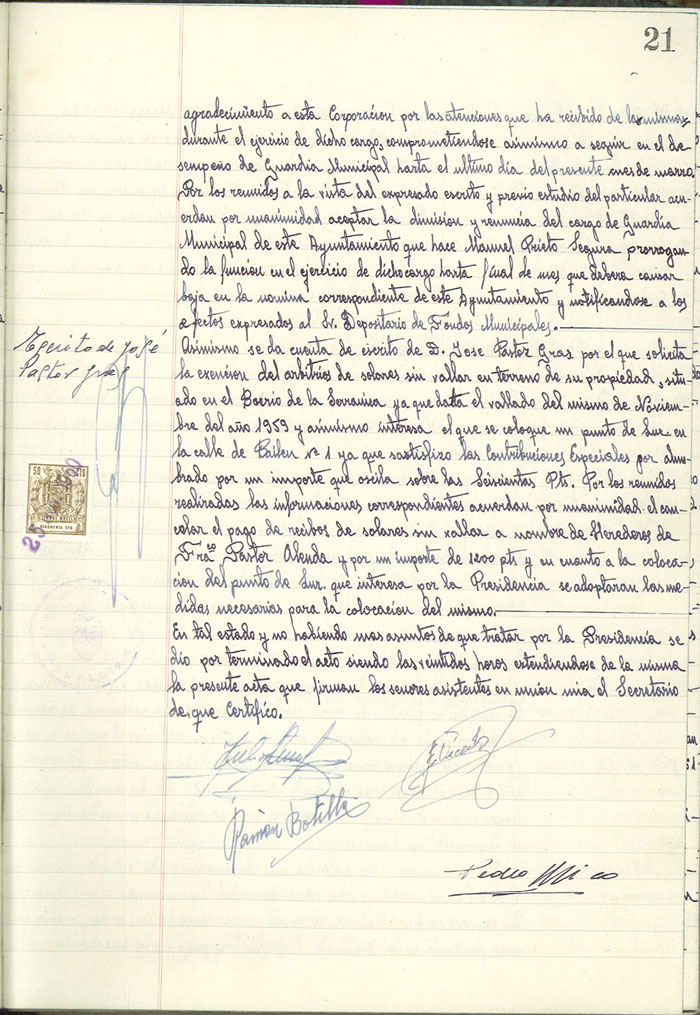 21
agradecimiento a esta Corporacion por las atenciones que ha recibido de la misma
durante el ejercicio de dicho cargo, comprometiendose asimismo a seguir en el de-
sempeño de Guardia Municipal hasta el ultimo dia del presente mes de marzo.
Por los reunidos a la vista del expresado escrito y previo estudio del particular acu-
erdan por unanimidad aceptar la dimision y renuncia del cargo de Guardia
Municipal de este Ayuntamiento que hace Manuel Prieto Segura prorrogan-
do la funcion en el ejercicio de dicho cargo hasta final de mes que debera causar
baja en la nomina correspondiente de este Ayuntamiento y notificandose a los
efectos expresados al Sr. Depositario de Fondos Municipales.
Escrito de José
Pastor Gras
Asimismo se da cuenta de escrito de D. Jose Pastor Gras por el que solicita
la exencion del arbitrios de solares sin vallar en terreno de su propiedad, situ-
ado en el Barrio de la Serranica ya que data el vallado del mismo de Noviem-
bre del año 1959 y asimismo interesa el que se coloque un punto de Luz en
la calle de Bailen nº 1 ya que sastisfizo las Contribuciones Especiales por alum-
brado por un importe que oscila sobre las Seiscientas Pts. Por los reunidos
realizadas las informaciones correspondientes acuerdan por unanimidad el can-
celar el pago de recibos de solares sin vallar a nombre de Herederos de
Frac͟o Pastor Abenda y por un importe de 1200 pts y en cuanto a la coloca-
cion del punto de Luz. que interesa por la Presidencia se adoptaran las me-
didas necesarias para la colocacion del mismo.
En tal estado y no habiendo mas asuntos de que tratar por la Presidencia se
dio por terminado el acto siendo las veintidos horas estendiendose de la misma
la presente acta que firman los señores asistentes en union mia el Secretario
de que Certifico.
50 CTS
25
Ramon Botella
Pedro Mico